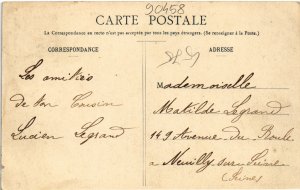 90458
CARTE POSTALE
La Correspondance au recto n'est pas acceptée par tous les pays étrangers. (Se renseigner à la Poste.)
CORRESPONDANCE
ADRESSE
Les amitiés
de ton Cousin
Lucien Legrand
Mademoiselle
Matilde Legrand
149 Avenue du Roule
à Neuilly sur Seine
(Seine)